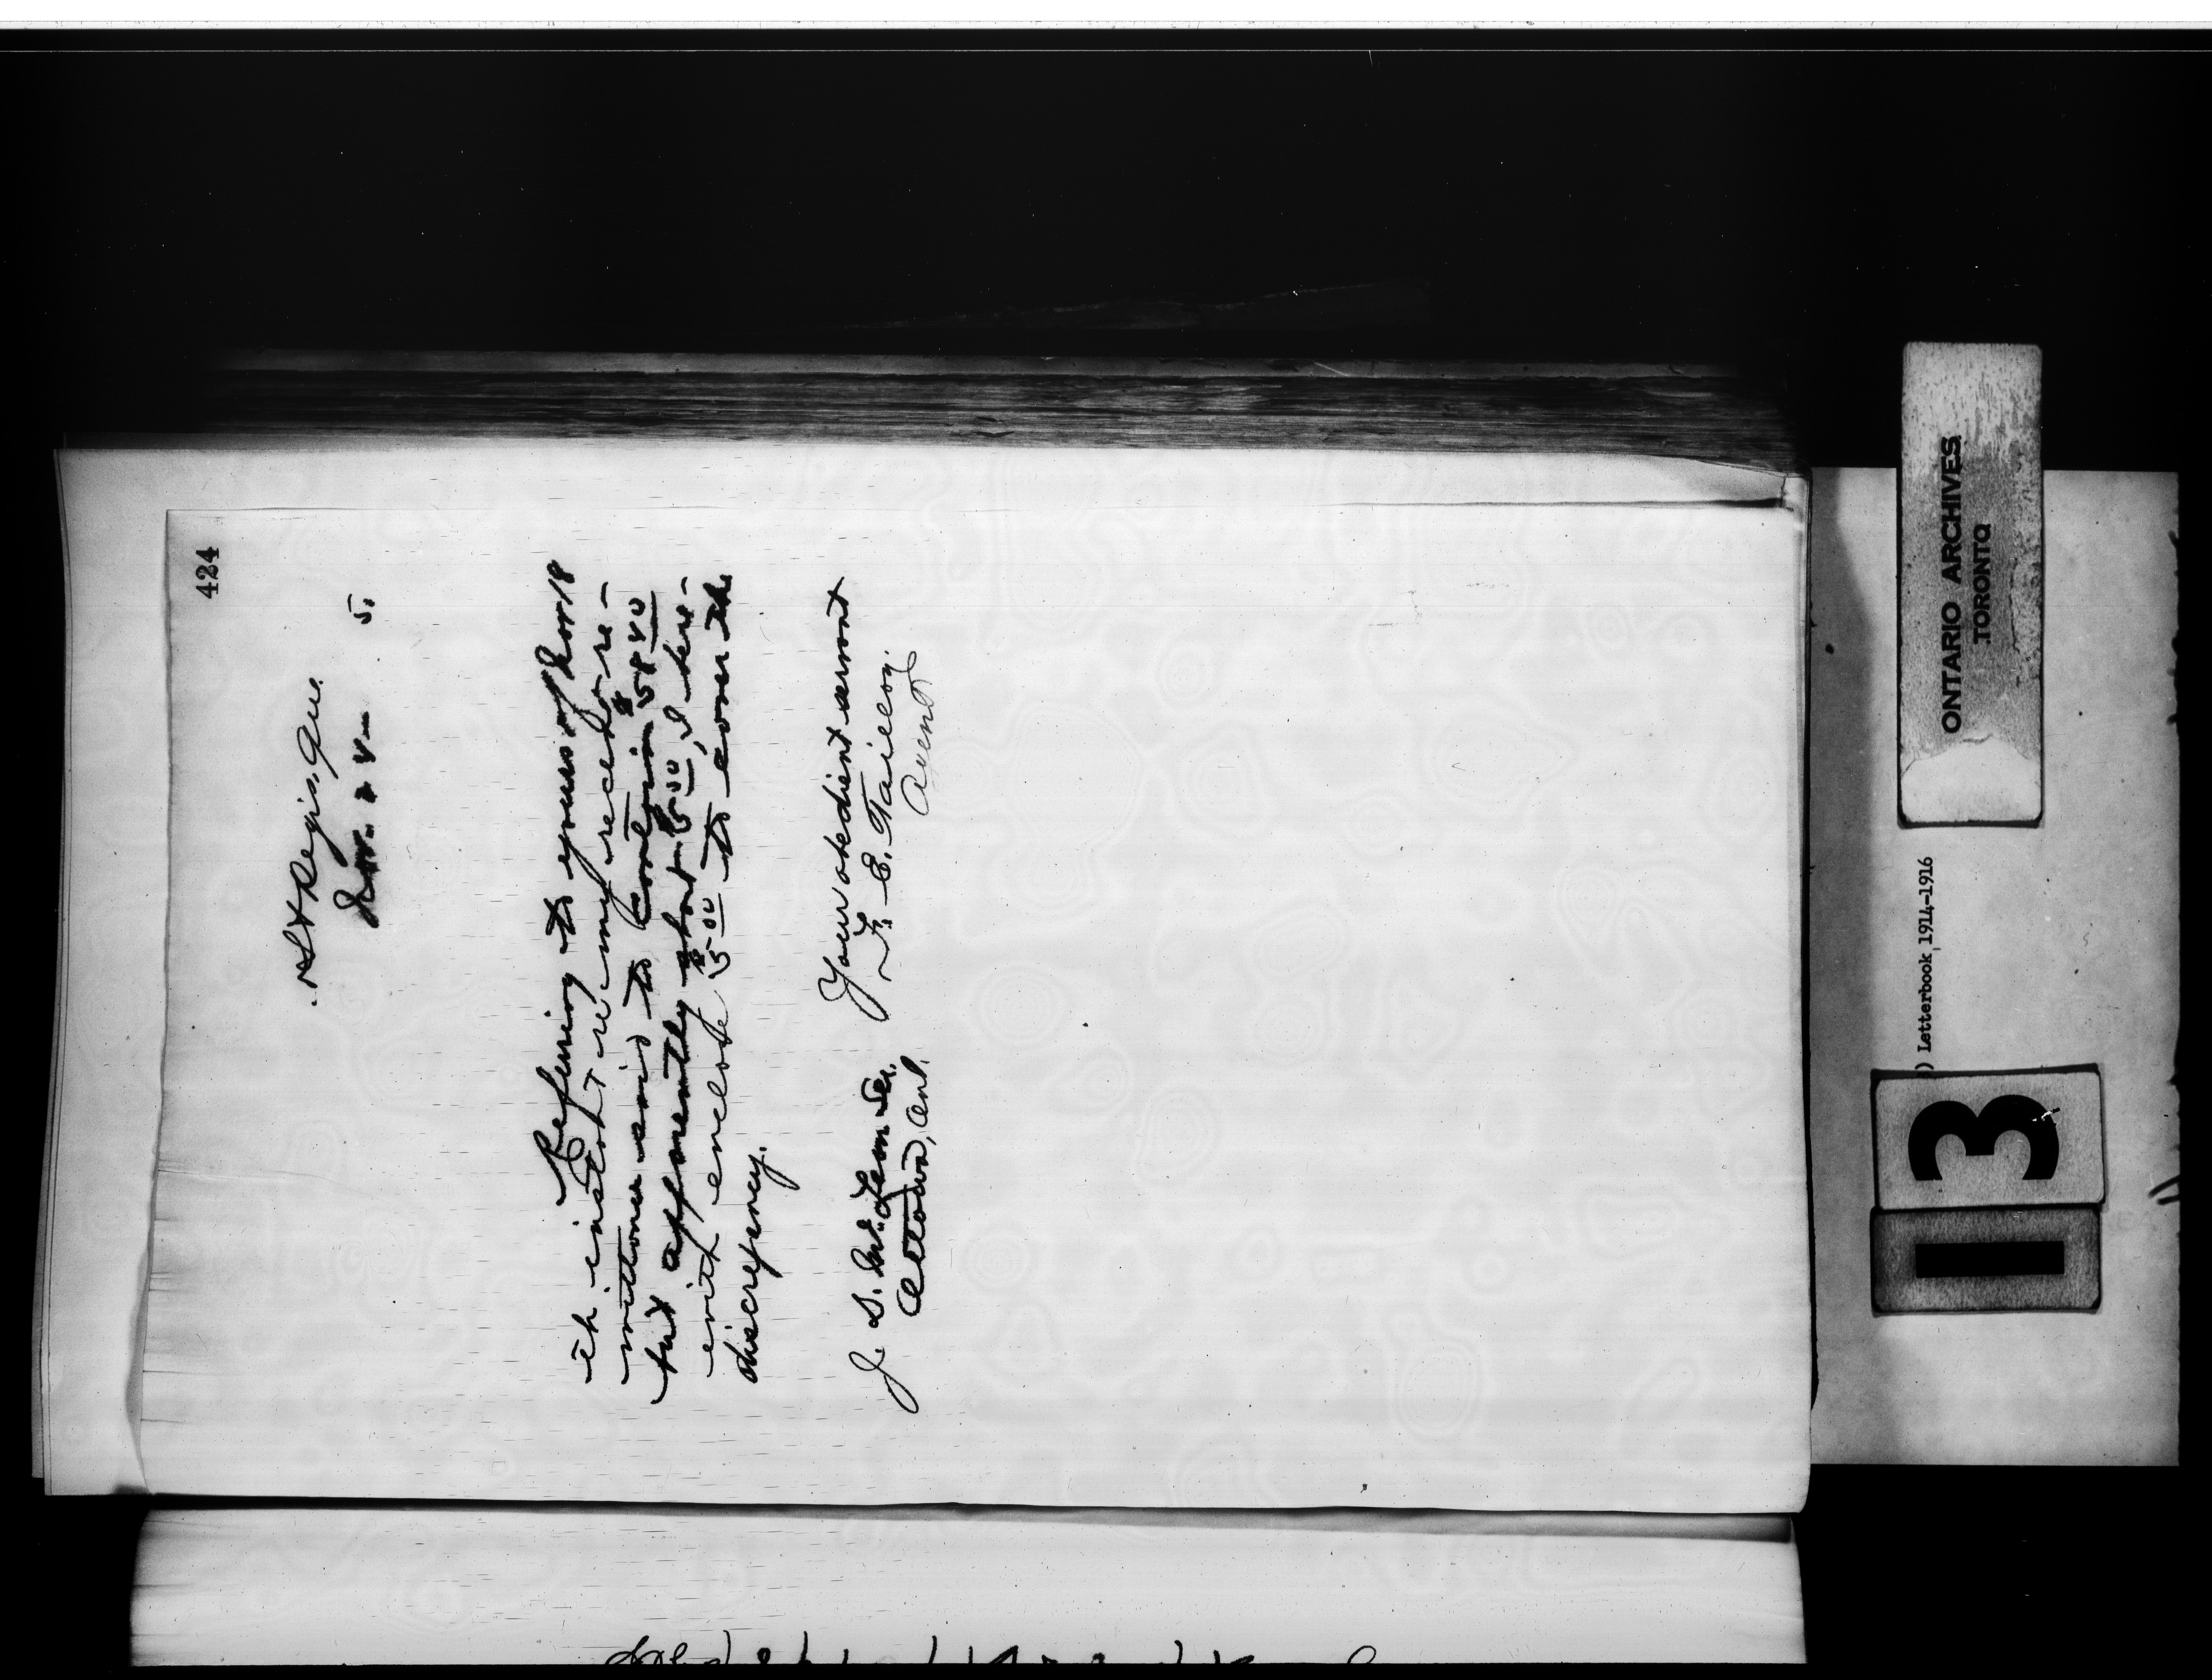 424
St Regis. Que.
Nov. 24 - 5.
Referring to yours of Nov 18
th instant re my recd for re-
mittance said to contain $58 40
but apparently short $5 00, I here-
with enclose $5 00 to cover the
discrepancy.
Your obedient servant
F. E. Taillon.
Agent
J. D. McLean Sec.
Ottawa, Ont.
ONTARIO ARCHIVES
TORONTO
) Letterbook, 1914-1916
13